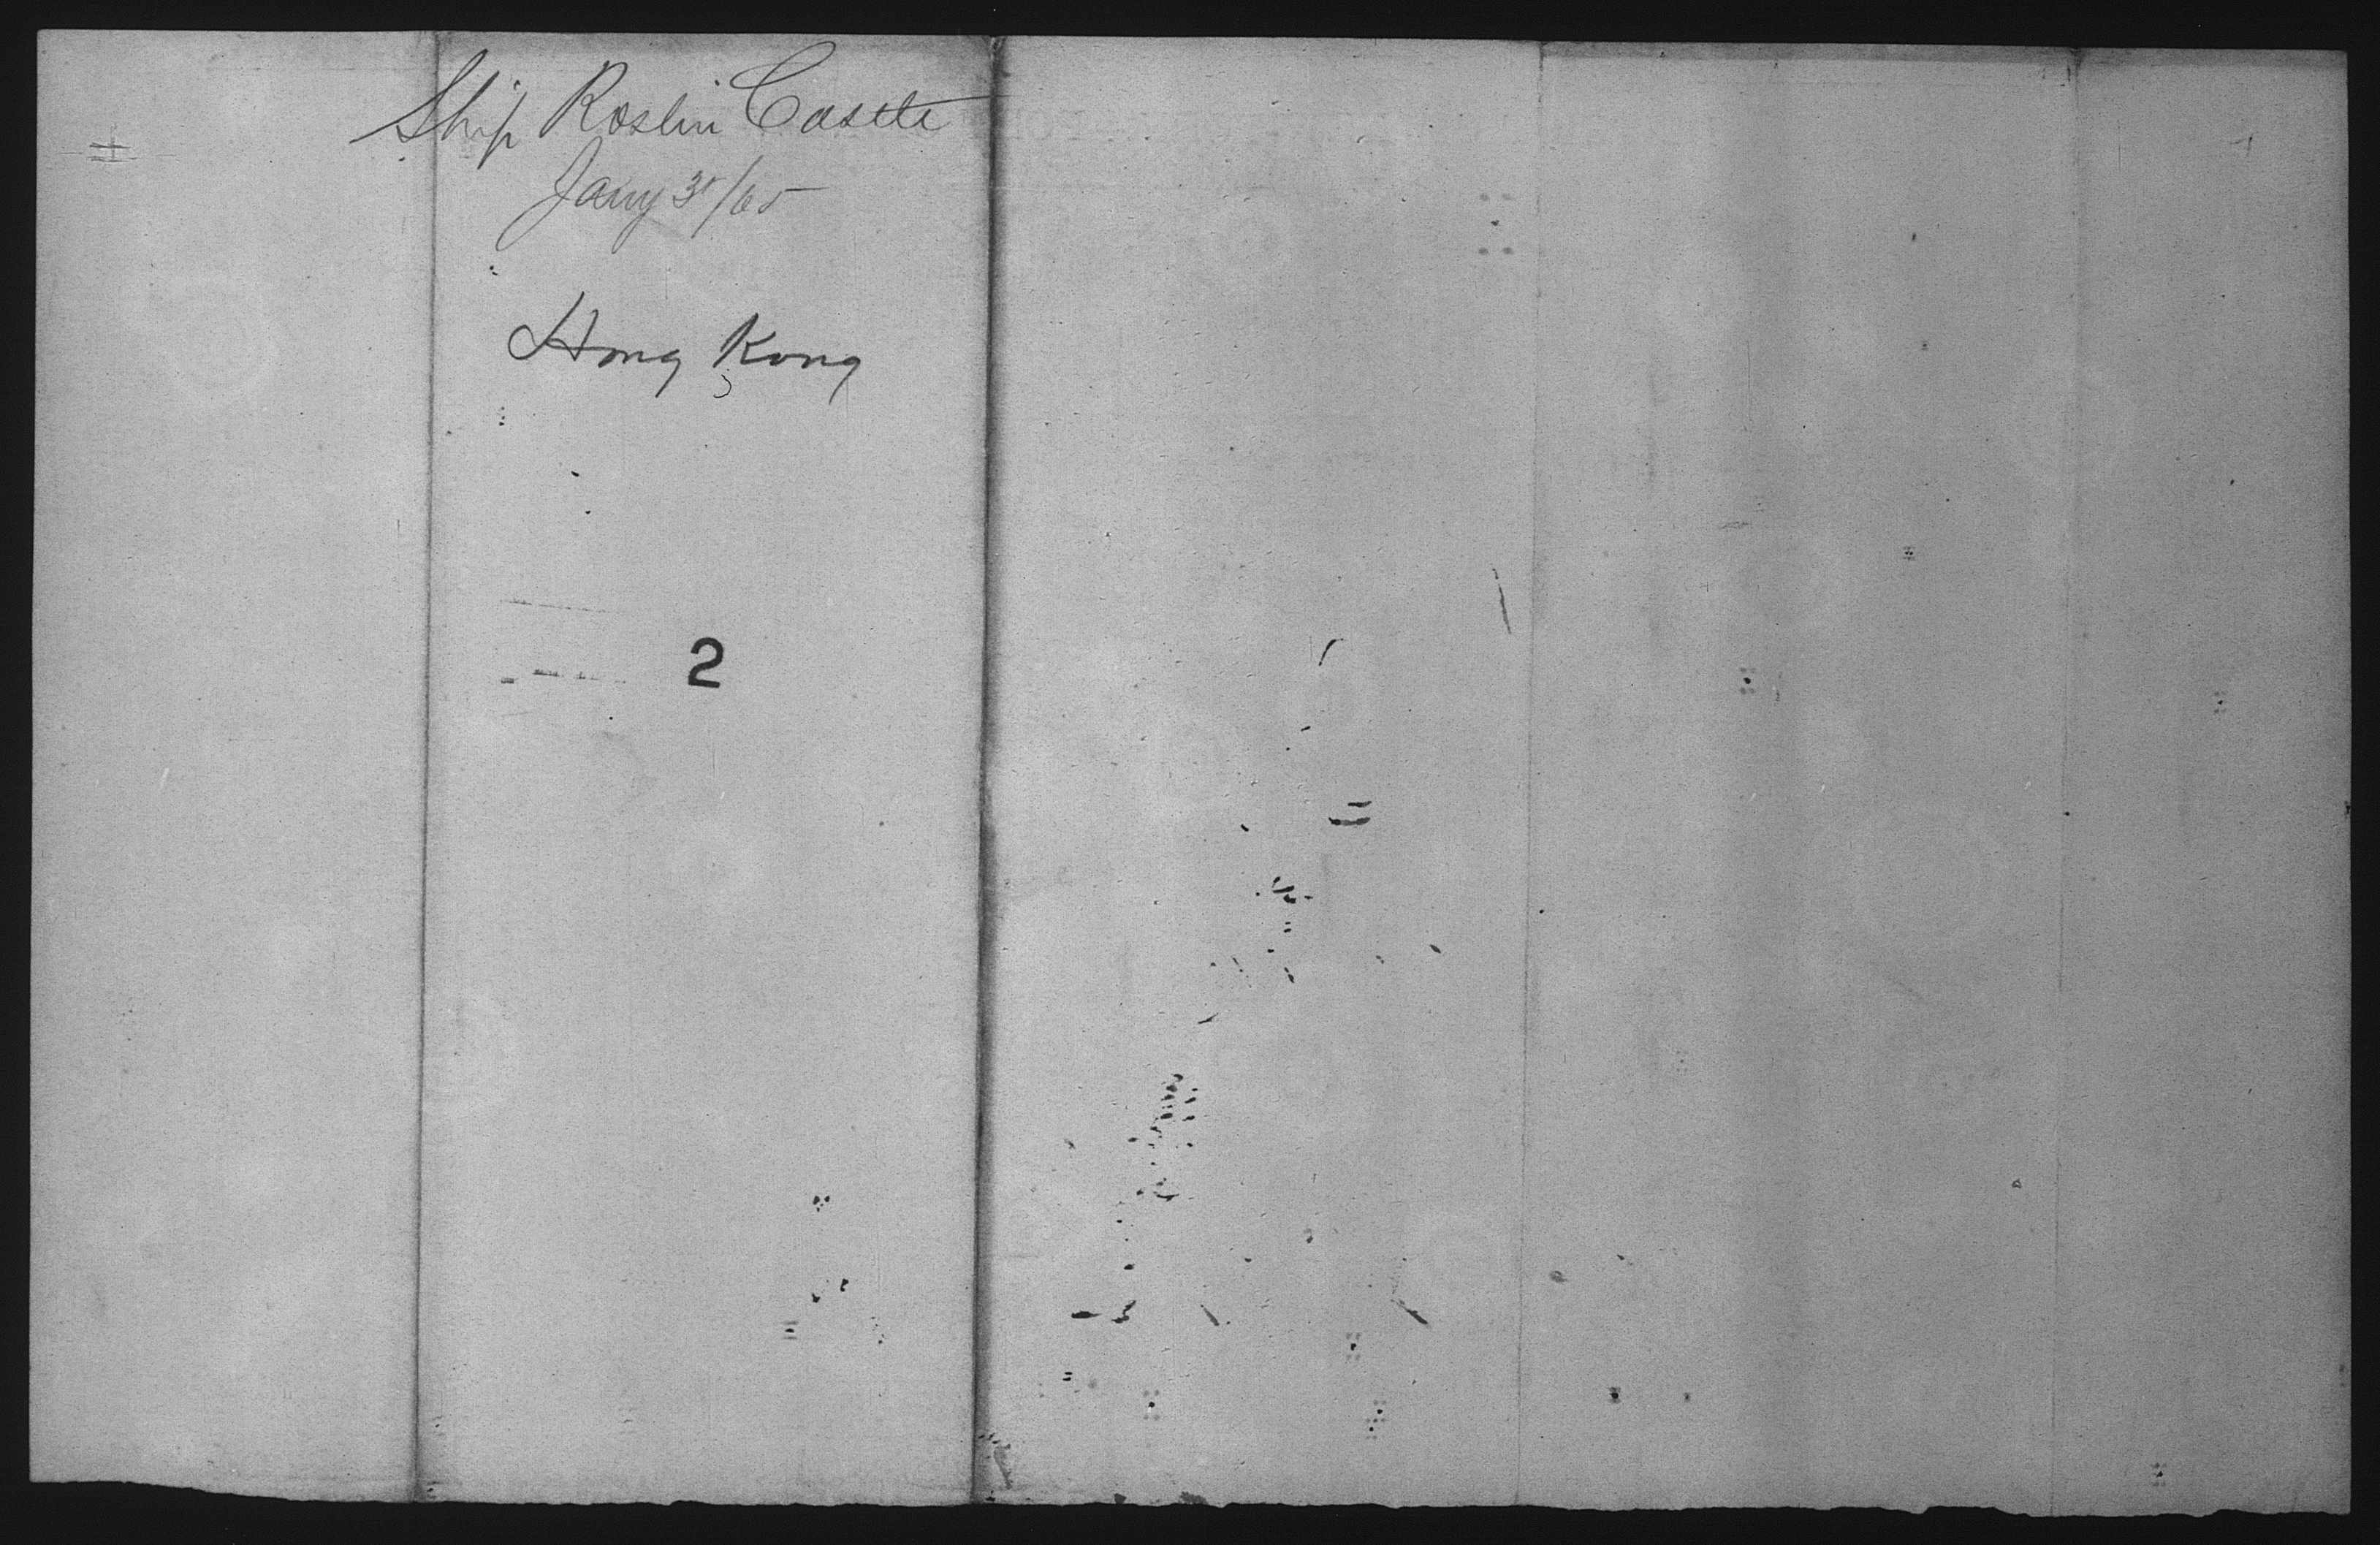 Ship Roslin Castle
Jany 31/65
Hong Kong
2